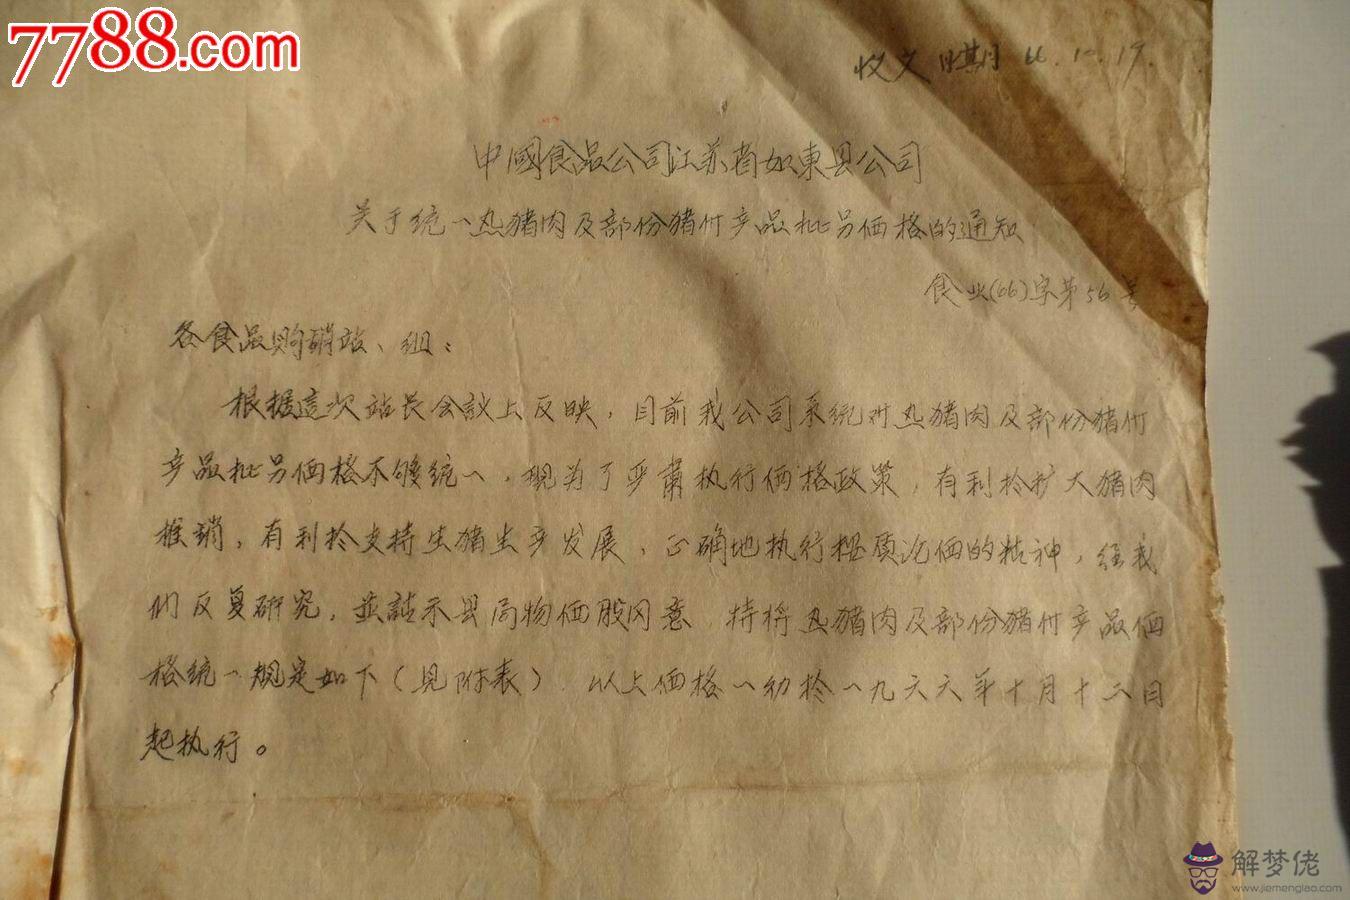 7788.com
收文日期 66.10.19.
中國食品公司江苏省如東县公司
关于统一热猪肉及部份猪付产品批另価格的通知
食业(66)字第56号
各食品购销站、组：
根据這次站长会议上反映，目前我公司系统对热猪肉及部份猪付
产品批另価格不够统一，现为了严肃执行価格政策，有利於扩大猪肉
推销，有利於支持生猪生产发展，正确地执行按质论価的精神，经我
们反复研究，並請示县局物価股同意，特将热猪肉及部份猪付产品価
格统一规定如下（见附表）以上価格一幼於一九六六年十月十二日
起执行。
解梦佬
www.jiemenglao.com